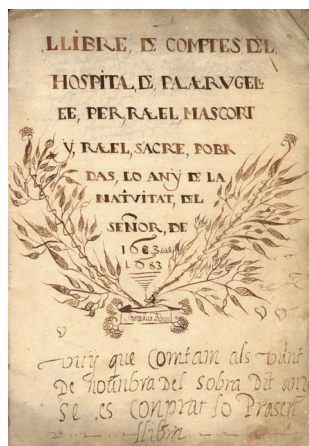 LLIBRE, DE COMPTES DEL
HOSPITA, DE, PALARUGELL
EE, PER, RAEL, MASCORT
Y, RAEL, SACRE, POBR
DAS, LO ANŸ DE LA
NATIVITAT, DEL
SEÑOR, DE
1683
1683
vuÿ que Comtam als vint
De nouenbra del sobra Dit any
Se es Comprat lo Present
llibra